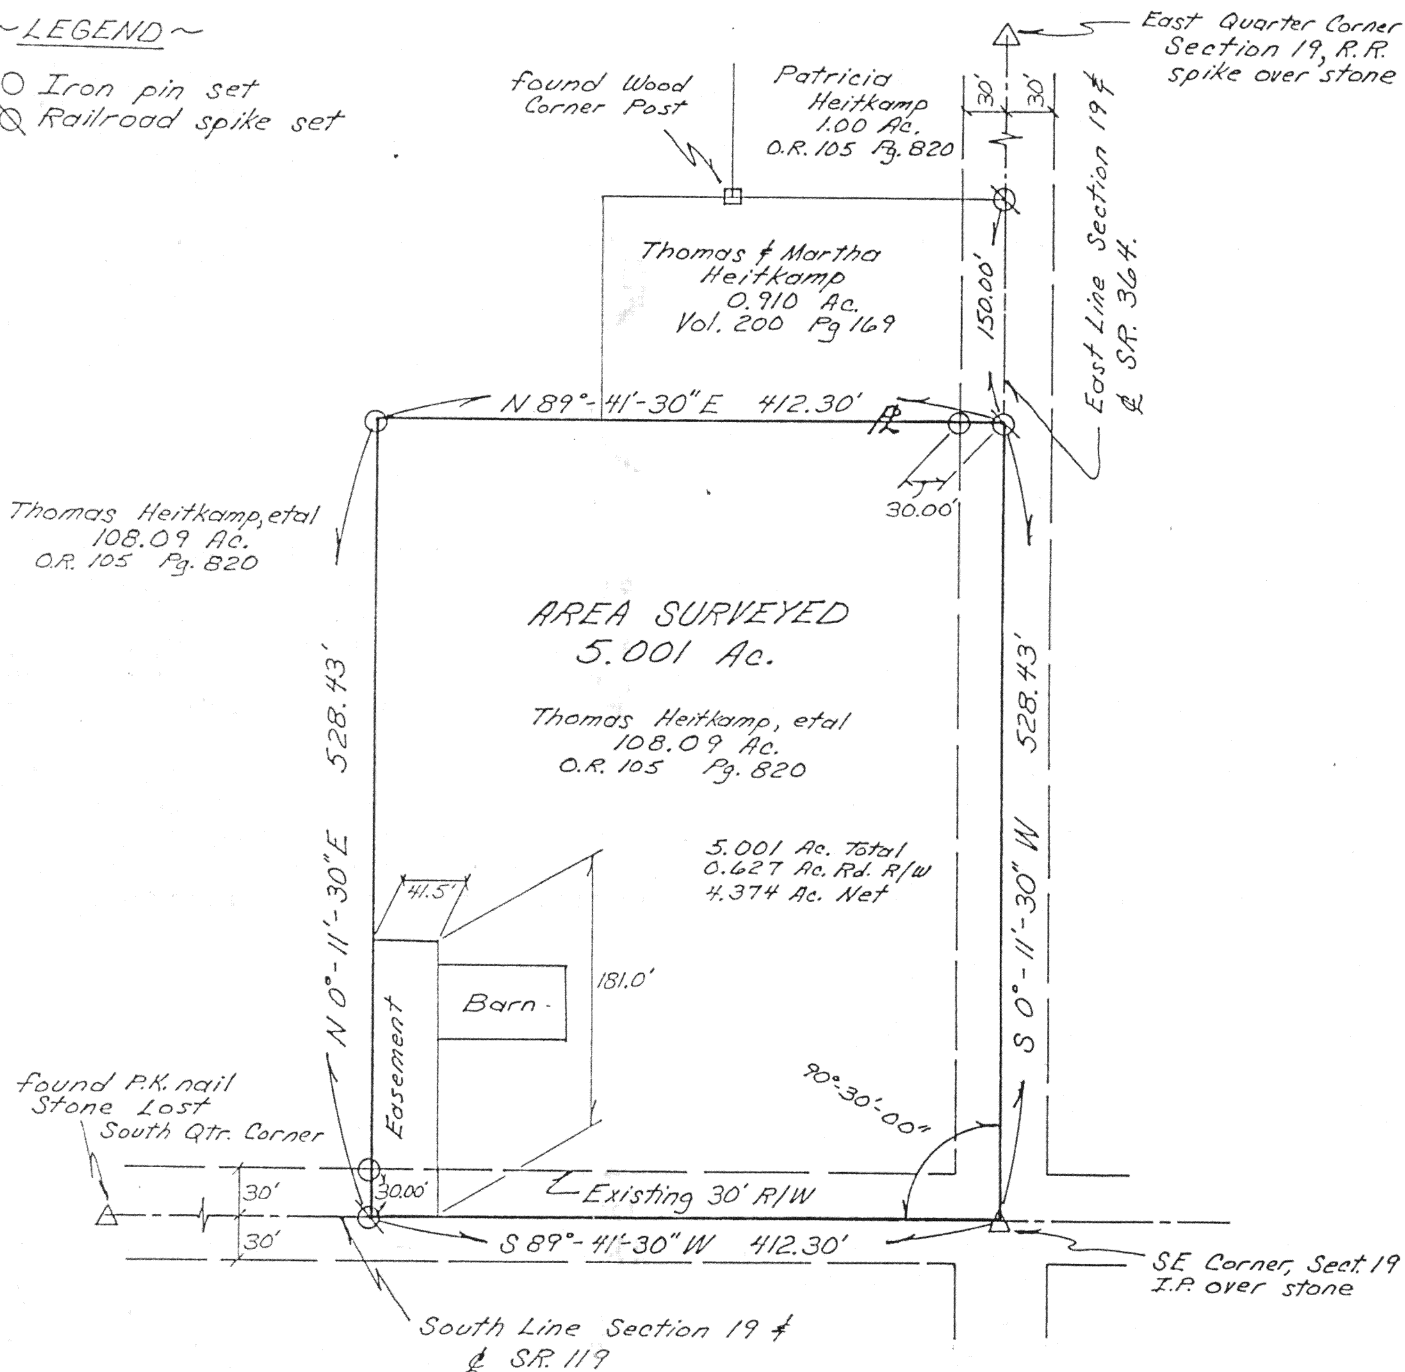 ~ LEGEND ~
Iron pin set
Railroad spike set
found Wood
Corner Post
Patricia
Heitkamp
1.00 Ac.
O.R. 105 Pg. 820
30' 30'
East Quarter Corner
Section 19, R.R.
spike over stone
East Line Section 19 &
℄ S.R. 364.
Thomas & Martha
Heitkamp
0.910 Ac.
Vol. 200 Pg 169
150.00'
N 89°-41'-30" E 412.30'
PL
30.00'
Thomas Heitkamp, etal
108.09 Ac.
O.R. 105 Pg. 820
AREA SURVEYED
5.001 Ac.
Thomas Heitkamp, etal
108.09 Ac.
O.R. 105 Pg. 820
5.001 Ac. Total
0.627 Ac. Rd. R/W
4.374 Ac. Net
N 0°-11'-30" E 528.43'
S 0°-11'-30" W 528.43'
41.5'
181.0'
Barn
Easement
90°-30'-00"
found P.K. nail
Stone Lost
South Qtr. Corner
30'
30'
30.00'
Existing 30' R/W
S 89°-41'-30" W 412.30'
SE Corner, Sect. 19
I.P. over stone
South Line Section 19 &
℄ SR. 119